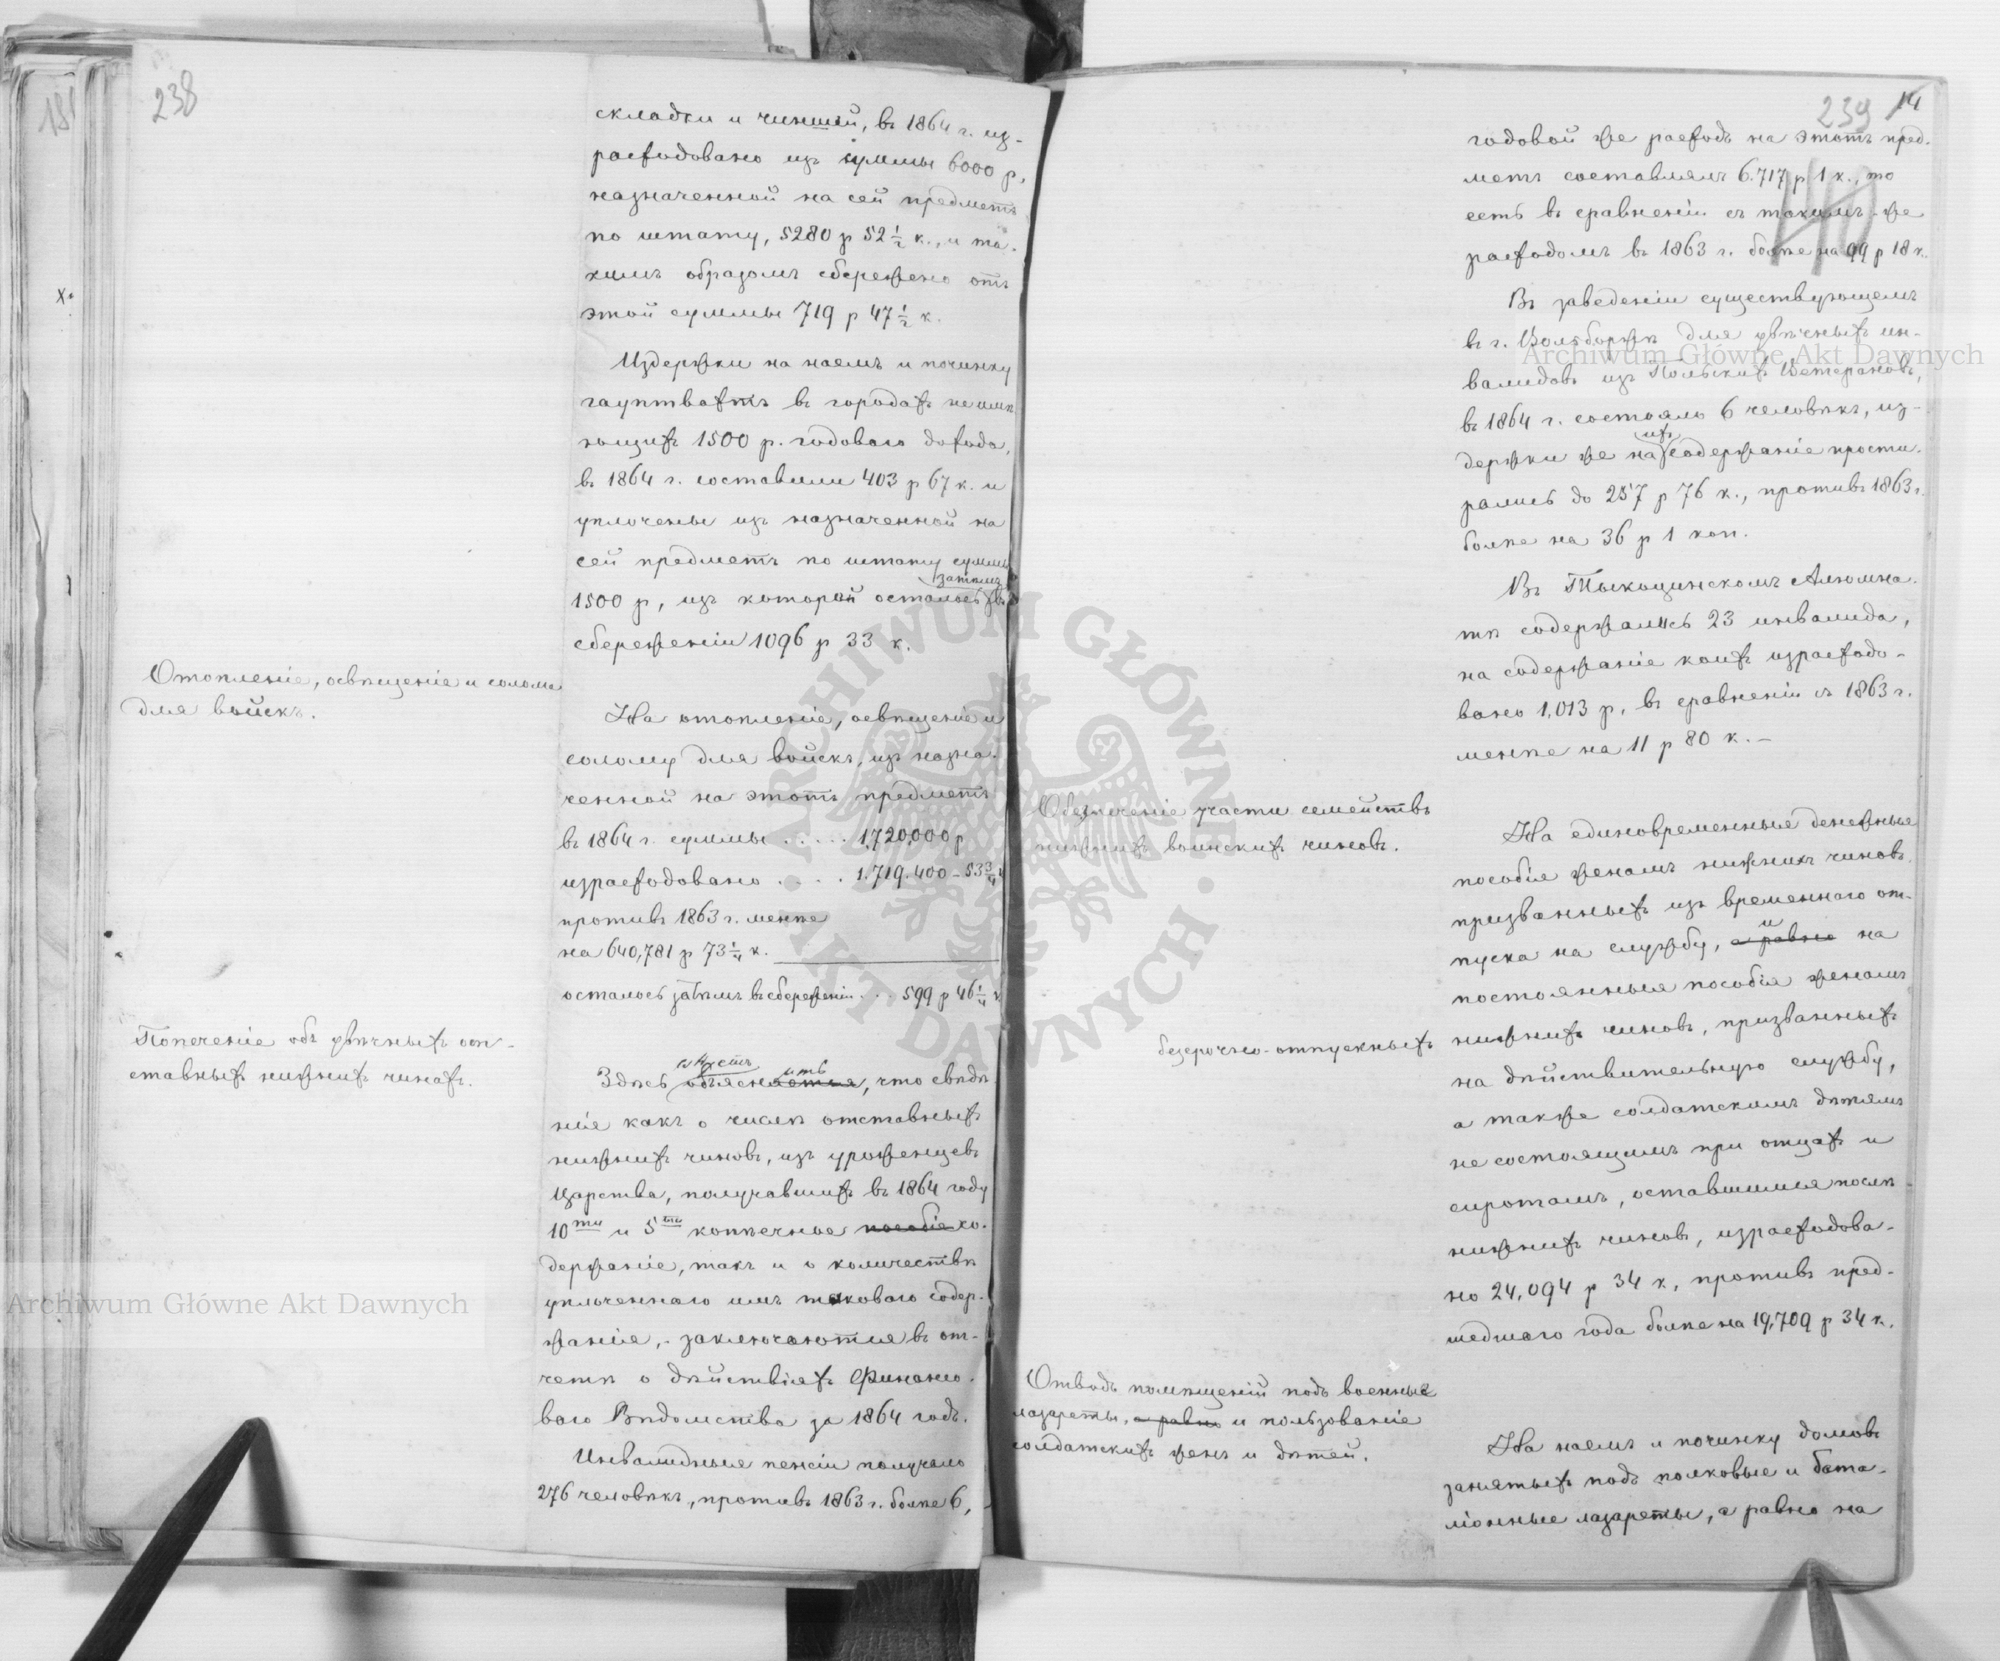 238
складки и чиншей, въ 1864 г. из-
расходовано изъ суммы 6000 р,
назначенной на сей предметъ
по штату, 5280 р 52½ к., и та-
кимъ образомъ сбережено отъ
этой суммы 719 р 47½ к.
Издержки на наемъ и починку
гауптвахтъ въ городахъ неимѣ-
ющихъ 1500 р. годоваго дохода,
въ 1864 г. составили 403 р 67 к. и
уплочены изъ назначенной на
сей предметъ по штату суммы
затѣмъ
1500 р, изъ которой осталось въ
сбереженіи 1096 р 33 к.
Отопленіе, освѣщеніе и солома
для войскъ.
На отопленіе, освѣщеніе и
солому для войскъ, изъ назна-
ченной на этотъ предметъ
въ 1864 г. суммы ..... 1,720,000 р
израсходовано .... 1.719.400 - 53¾ к
противъ 1863 г. менѣе
на 640,781 р 73¼ к.
осталось затѣмъ въ сбереженіи... 599 р 46¼ к
Попеченіе объ увѣчныхъ от-
ставныхъ нижнихъ чинахъ.
Здѣсь объясняется, что свѣдѣ-
нія какъ о числѣ отставныхъ
нижнихъ чиновъ, изъ уроженцевъ
Царства, получавшихъ въ 1864 году
10ти и 5ти копѣечное пособіе со-
держаніе, такъ и о количествѣ
уплоченнаго имъ таковаго содер-
жанія, - заключаются въ от-
четѣ о дѣйствіяхъ Финансо-
ваго Вѣдомства за 1864 годъ.
Инвалидныя пенсіи получало
276 человѣкъ, противъ 1863 г. болѣе 6,
239
14
годовой же расходъ на этотъ пред-
метъ составлялъ 6.717 р 1 к., то
есть въ сравненіи съ такимъ-же
расходомъ въ 1863 г. болѣе на 99 р 18 к.
Въ заведеніи существующемъ
въ г. Вольборжѣ для увѣчныхъ ин-
валидовъ изъ Польскихъ Ветерановъ,
въ 1864 г. состояло 6 человѣкъ, из-
ихъ
держки же на содержаніе прости-
рались до 257 р 76 к., противъ 1863 г.
болѣе на 36 р 1 коп.
Въ Тыкоцинскомъ Алюмна-
тѣ содержались 23 инвалида,
на содержаніе коихъ израсходо-
вано 1,013 р, въ сравненіи съ 1863 г.
менѣе на 11 р 80 к. -
Обезпеченіе участи семействъ
нижнихъ воинскихъ чиновъ.
На единовременныя денежныя
пособія женамъ нижнихъ чиновъ,
призванныхъ изъ временнаго от-
и
пуска на службу, а равно на
постоянныя пособія женамъ
безсрочно-отпускныхъ
нижнихъ чиновъ, призванныхъ
на дѣйствительную службу,
а также солдатскимъ дѣтямъ
не состоящимъ при отцахъ и
сиротамъ, оставшимся послѣ
нижнихъ чиновъ, израсходова-
но 24,094 р 34 к, противъ пред-
шедшаго года болѣе на 19,709 р 34 к.
Отводъ помѣщеній подъ военные
лазареты, а равно и пользованіе
солдатскихъ женъ и дѣтей.
На наемъ и починку домовъ
занятыхъ подъ полковые и бата-
ліонные лазареты, а равно на
Archiwum Główne Akt Dawnych
Archiwum Główne Akt Dawnych
ARCHIWUM GŁÓWNE · AKT DAWNYCH ·